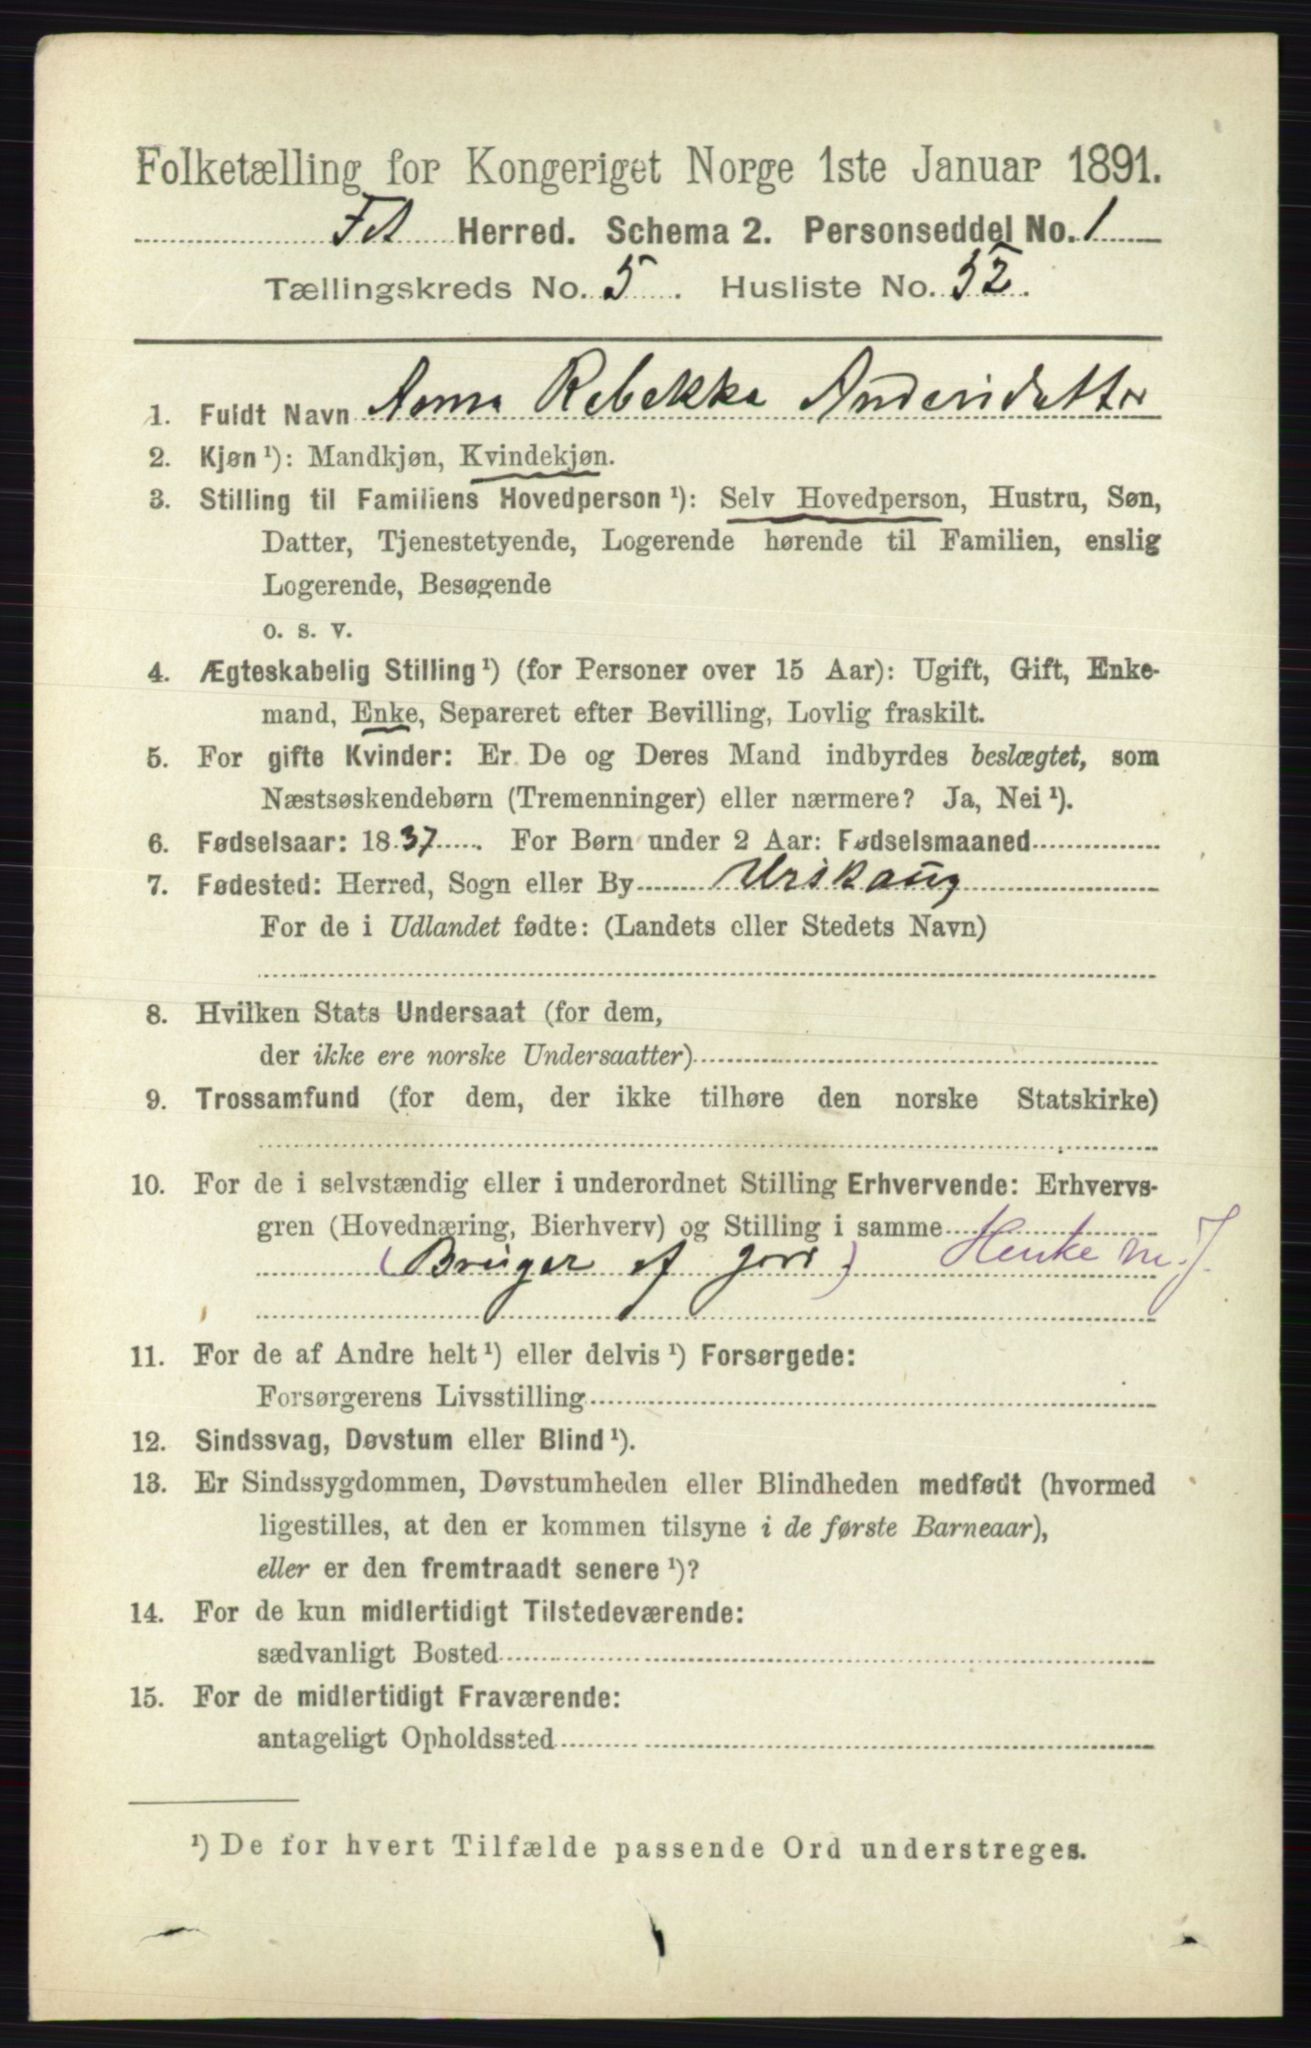 Folketælling for Kongeriget Norge 1ste Januar 1891.
Fet Herred. Schema 2. Personseddel No. 1
Tællingskreds No. 5. Husliste No. 52.
1. Fuldt Navn Anna Rebekka Andersdatter
2. Kjøn ¹): Mandkjøn, Kvindekjøn.
3. Stilling til Familiens Hovedperson ¹): Selv Hovedperson, Hustru, Søn,
Datter, Tjenestetyende, Logerende hørende til Familien, enslig
Logerende, Besøgende
o. s. v.
4. Ægteskabelig Stilling ¹) (for Personer over 15 Aar): Ugift, Gift, Enke-
mand, Enke, Separeret efter Bevilling, Lovlig fraskilt.
5. For gifte Kvinder: Er De og Deres Mand indbyrdes beslægtet, som
Næstsøskendebørn (Tremenninger) eller nærmere? Ja, Nei ¹).
6. Fødselsaar: 1837. For Børn under 2 Aar: Fødselsmaaned
7. Fødested: Herred, Sogn eller By Urskaug
For de i Udlandet fødte: (Landets eller Stedets Navn)
8. Hvilken Stats Undersaat (for dem,
der ikke ere norske Undersaatter)
9. Trossamfund (for dem, der ikke tilhøre den norske Statskirke)
10. For de i selvstændig eller i underordnet Stilling Erhvervende: Erhvervs-
gren (Hovednæring, Bierhverv) og Stilling i samme
(Bruger af jord) Henke m. J.
11. For de af Andre helt ¹) eller delvis ¹) Forsørgede:
Forsørgerens Livsstilling
12. Sindssvag, Døvstum eller Blind ¹).
13. Er Sindssygdommen, Døvstumheden eller Blindheden medfødt (hvormed
ligestilles, at den er kommen tilsyne i de første Barneaar),
eller er den fremtraadt senere ¹)?
14. For de kun midlertidigt Tilstedeværende:
sædvanligt Bosted
15. For de midlertidigt Fraværende:
antageligt Opholdssted
¹) De for hvert Tilfælde passende Ord understreges.